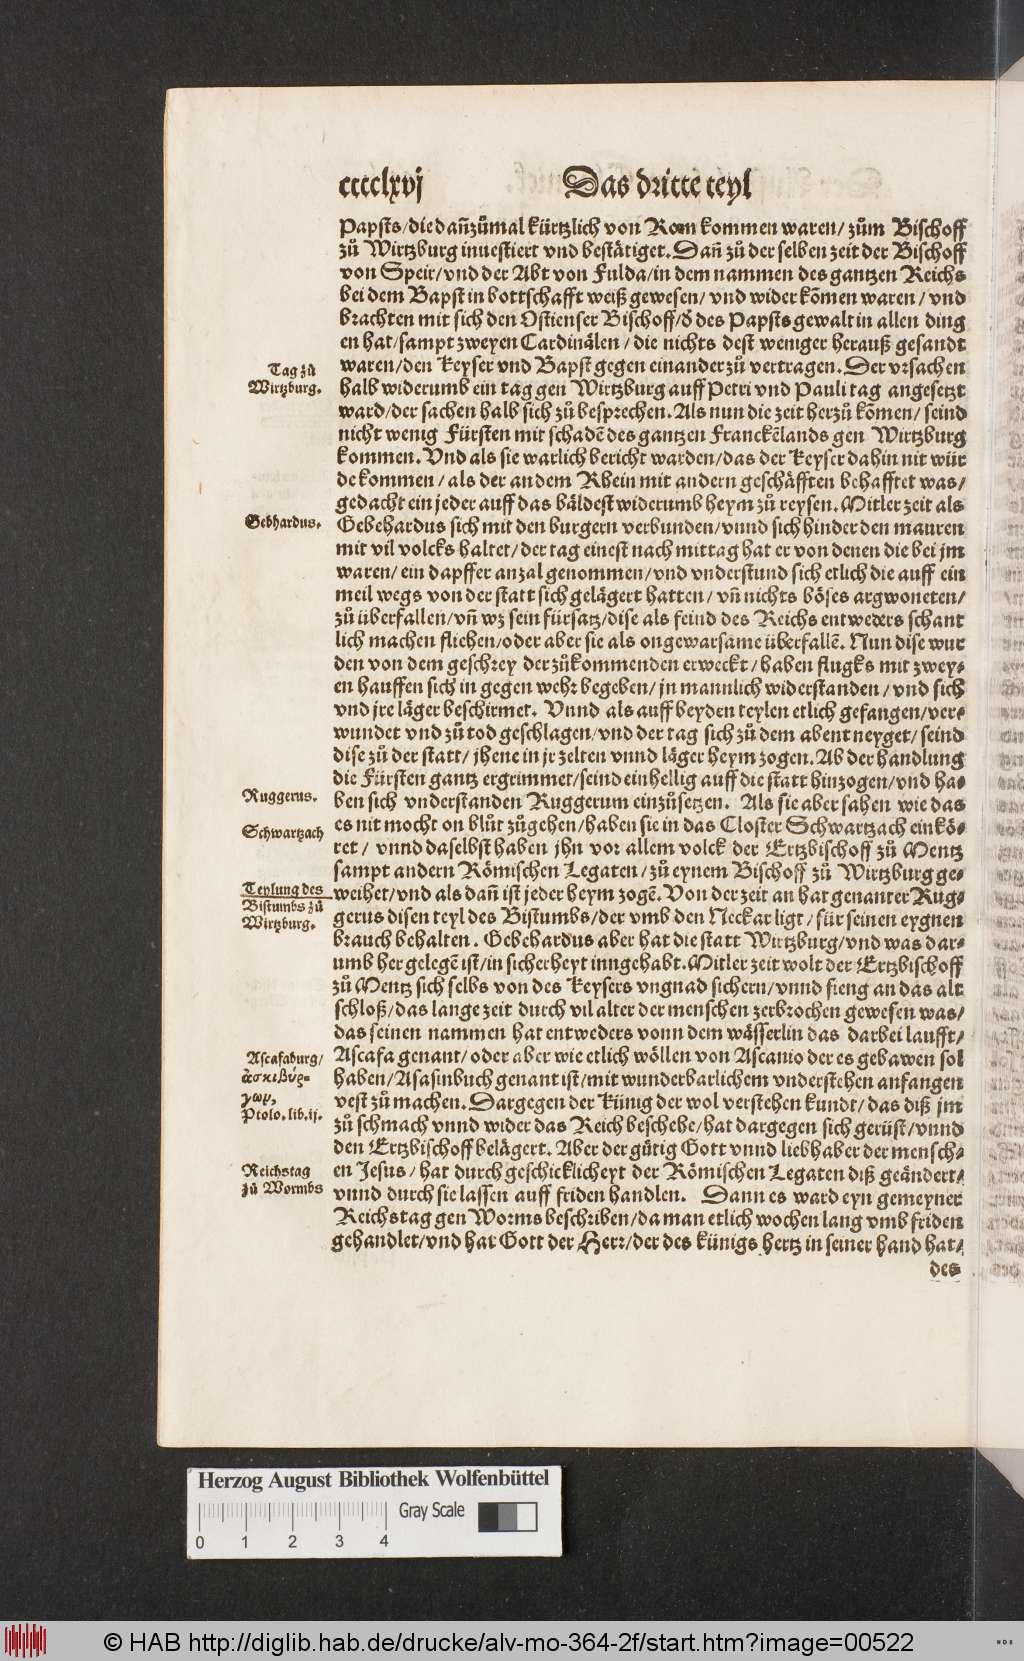 cccclxvj Das dritte teyl
Papsts/die dañzůmal kürtzlich von Rom kommen waren/ zům Bischoff
zů Wirtzburg inuestiert vnd bestätiget. Dañ zů der selben zeit der Bischoff
von Speir/vnd der Abt von Fulda/in dem nammen des gantzen Reichs
bei dem Bapst in bottschafft weiß gewesen/ vnd wider kõmen waren/ vnd
brachten mit sich den Ostienser Bischoff/d̃ des Papsts gewalt in allen ding
en hat/sampt zweyen Cardinälen/ die nichts dest weniger herauß gesandt
waren/den Keyser vnd Bapst gegen einander zů vertragen. Der vrsachen
Tag zů
Wirtzburg.
halb widerumb ein tag gen Wirtzburg auff Petri vnd Pauli tag angesetzt
ward/der sachen halb sich zů besprechen. Als nun die zeit herzů kõmen/ seind
nicht wenig Fürsten mit schadẽ des gantzen Franckẽlands gen Wirtzburg
kommen. Vnd als sie warlich bericht warden/das der Keyser dahin nit wür
de kommen/ als der an dem Rhein mit andern geschäfften behafftet was/
gedacht ein jeder auff das bäldest widerumb heym zů reysen. Mitler zeit als
Gebhardus.
Gebehardus sich mit den burgern verbunden/vnnd sich hinder den mauren
mit vil volcks haltet/ der tag einest nach mittag hat er von denen die bei jm
waren/ ein dapffer anzal genommen/vnd vnderstund sich etlich die auff ein
meil wegs von der statt sich gelägert hatten/ vñ nichts böses argwoneten/
zů überfallen/vñ wz sein fürsatz/dise als feind des Reichs entweders schant
lich machen fliehen/oder aber sie als ongewarsame überfallẽ. Nun dise wur
den von dem geschrey der zůkommenden erweckt/ haben flugks mit zwey-
en hauffen sich in gegen wehr begeben/ jn mannlich widerstanden/ vnd sich
vnd jre läger beschirmet. Vnnd als auff beyden teylen etlich gefangen/ver-
wundet vnd zů tod geschlagen/vnd der tag sich zů dem abent neyget/ seind
dise zů der statt/ jhene in jr zelten vnnd läger heym zogen. Ab der handlung
die Fürsten gantz ergrimmet/seind einhellig auff die statt hinzogen/vnd ha-
Ruggerus.
ben sich vnderstanden Ruggerum einzůsetzen. Als sie aber sahen wie das
Schwartzach
es nit mocht on blůt zůgehen/haben sie in das Closter Schwartzach einkö-
ret/ vnnd daselbst haben jhn vor allem volck der Ertzbischoff zů Mentz
sampt andern Römischen Legaten/ zů eynem Bischoff zů Wirtzburg ge-
Teylung des
Bistumbs zů
Wirtzburg.
weihet/vnd als dañ ist jeder heym zogẽ. Von der zeit an hat genanter Rug-
gerus disen teyl des Bistumbs/der vmb den Neckar ligt/ für seinen eygnen
brauch behalten. Gebehardus aber hat die statt Wirtzburg/vnd was dar-
umb her gelegẽ ist/in sicherheyt inngehabt. Mitler zeit wolt der Ertzbischoff
zů Mentz sich selbs von des Keysers vngnad sichern/vnnd fieng an das alt
schloß/das lange zeit durch vil alter der menschen zerbrochen gewesen was/
das seinen nammen hat entweders vonn dem wässerlin das darbei laufft/
Ascafaburg/
ἀσκιβύρ-
γων,
Ptolo.lib.ij.
Ascafa genant/oder aber wie etlich wöllen von Ascanio der es gebawen sol
haben/Asasinbuch genant ist/mit wunderbarlichem vnderstehen anfangen
vest zů machen. Dargegen der Künig der wol verstehen kundt/das diß jm
zů schmach vnnd wider das Reich beschehe/hat dargegen sich gerüst/vnnd
den Ertzbischoff belägert. Aber der gütig Gott vnnd liebhaber der mensch-
Reichstag
zů Wormbs
en Jesus/hat durch geschicklicheyt der Römischen Legaten diß geändert/
vnnd durch sie lassen auff friden handlen. Dann es ward eyn gemeyner
Reichstag gen Worms beschriben/da man etlich wochen lang vmb friden
gehandlet/vnd hat Gott der Herr/der des künigs hertz in seiner hand hat/
des
Herzog August Bibliothek Wolfenbüttel
Gray Scale
0 1 2 3 4
© HAB http://diglib.hab.de/drucke/alv-mo-364-2f/start.htm?image=00522